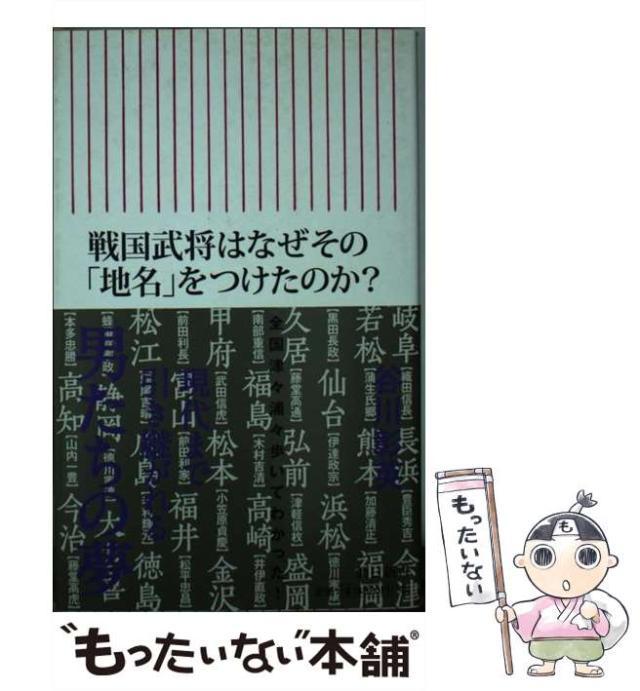 戦国武将はなぜその
「地名」をつけたのか?
谷川彰英
全国津々浦々歩いてわかった!
現代まで
引き継がれる
男たちの夢
岐阜[織田信長]長浜[豊臣秀吉]会津
若松[蒲生氏郷]熊本[加藤清正]福岡
[黒田長政]仙台[伊達政宗]浜松
久居[藤堂高通]弘前[津軽信枚]盛岡
[南部重信]福島[木村吉清]高崎[井伊直政]
甲府[武田信虎]松本[小笠原貞慶]金沢
[前田利長]富山[前田利家]福井[松平忠昌]
松江 広島 徳島
静岡
[本多忠勝]高知[山内一豊]今治[藤堂高虎]
も
もったいない
"もったいない"本舗®